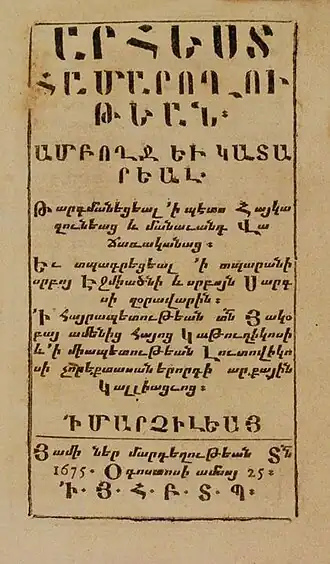 ԱՐՀԵՍՏ
ՀԱՄԱՐՈՂՈՒ
ԹԵԱՆ։
ԱՄԲՈՂՋ ԵՒ ԿԱՏԱ
ՐԵԱԼ
Թարգմանեցեալ ՚ի պետս Հայկա
զունեաց և մանաւանդ Վա
ճառականաց։
Եւ տպագրեցեալ ՚ի տպարանի
սրբոյ Էջմիածնի և սրբոյն Սարգ
սի զօրավարին։
Ի Հայրապետութեան տն Յակօ
բայ ամենից Հայոց Կաթուղիկոսի
և ՚ի միապետութեան Լուտովիկո
սի չորեքտասաներորդի արքային
Կալլիացւոց։
Ի ՄԱՐԶԻԼԻԱՅ
Յամի ներ մարդեղութեան Տն
1675. Օգոստոսի ամսոյ 25։
Ի. Յ. Հ. Բ. Տ. Պ.